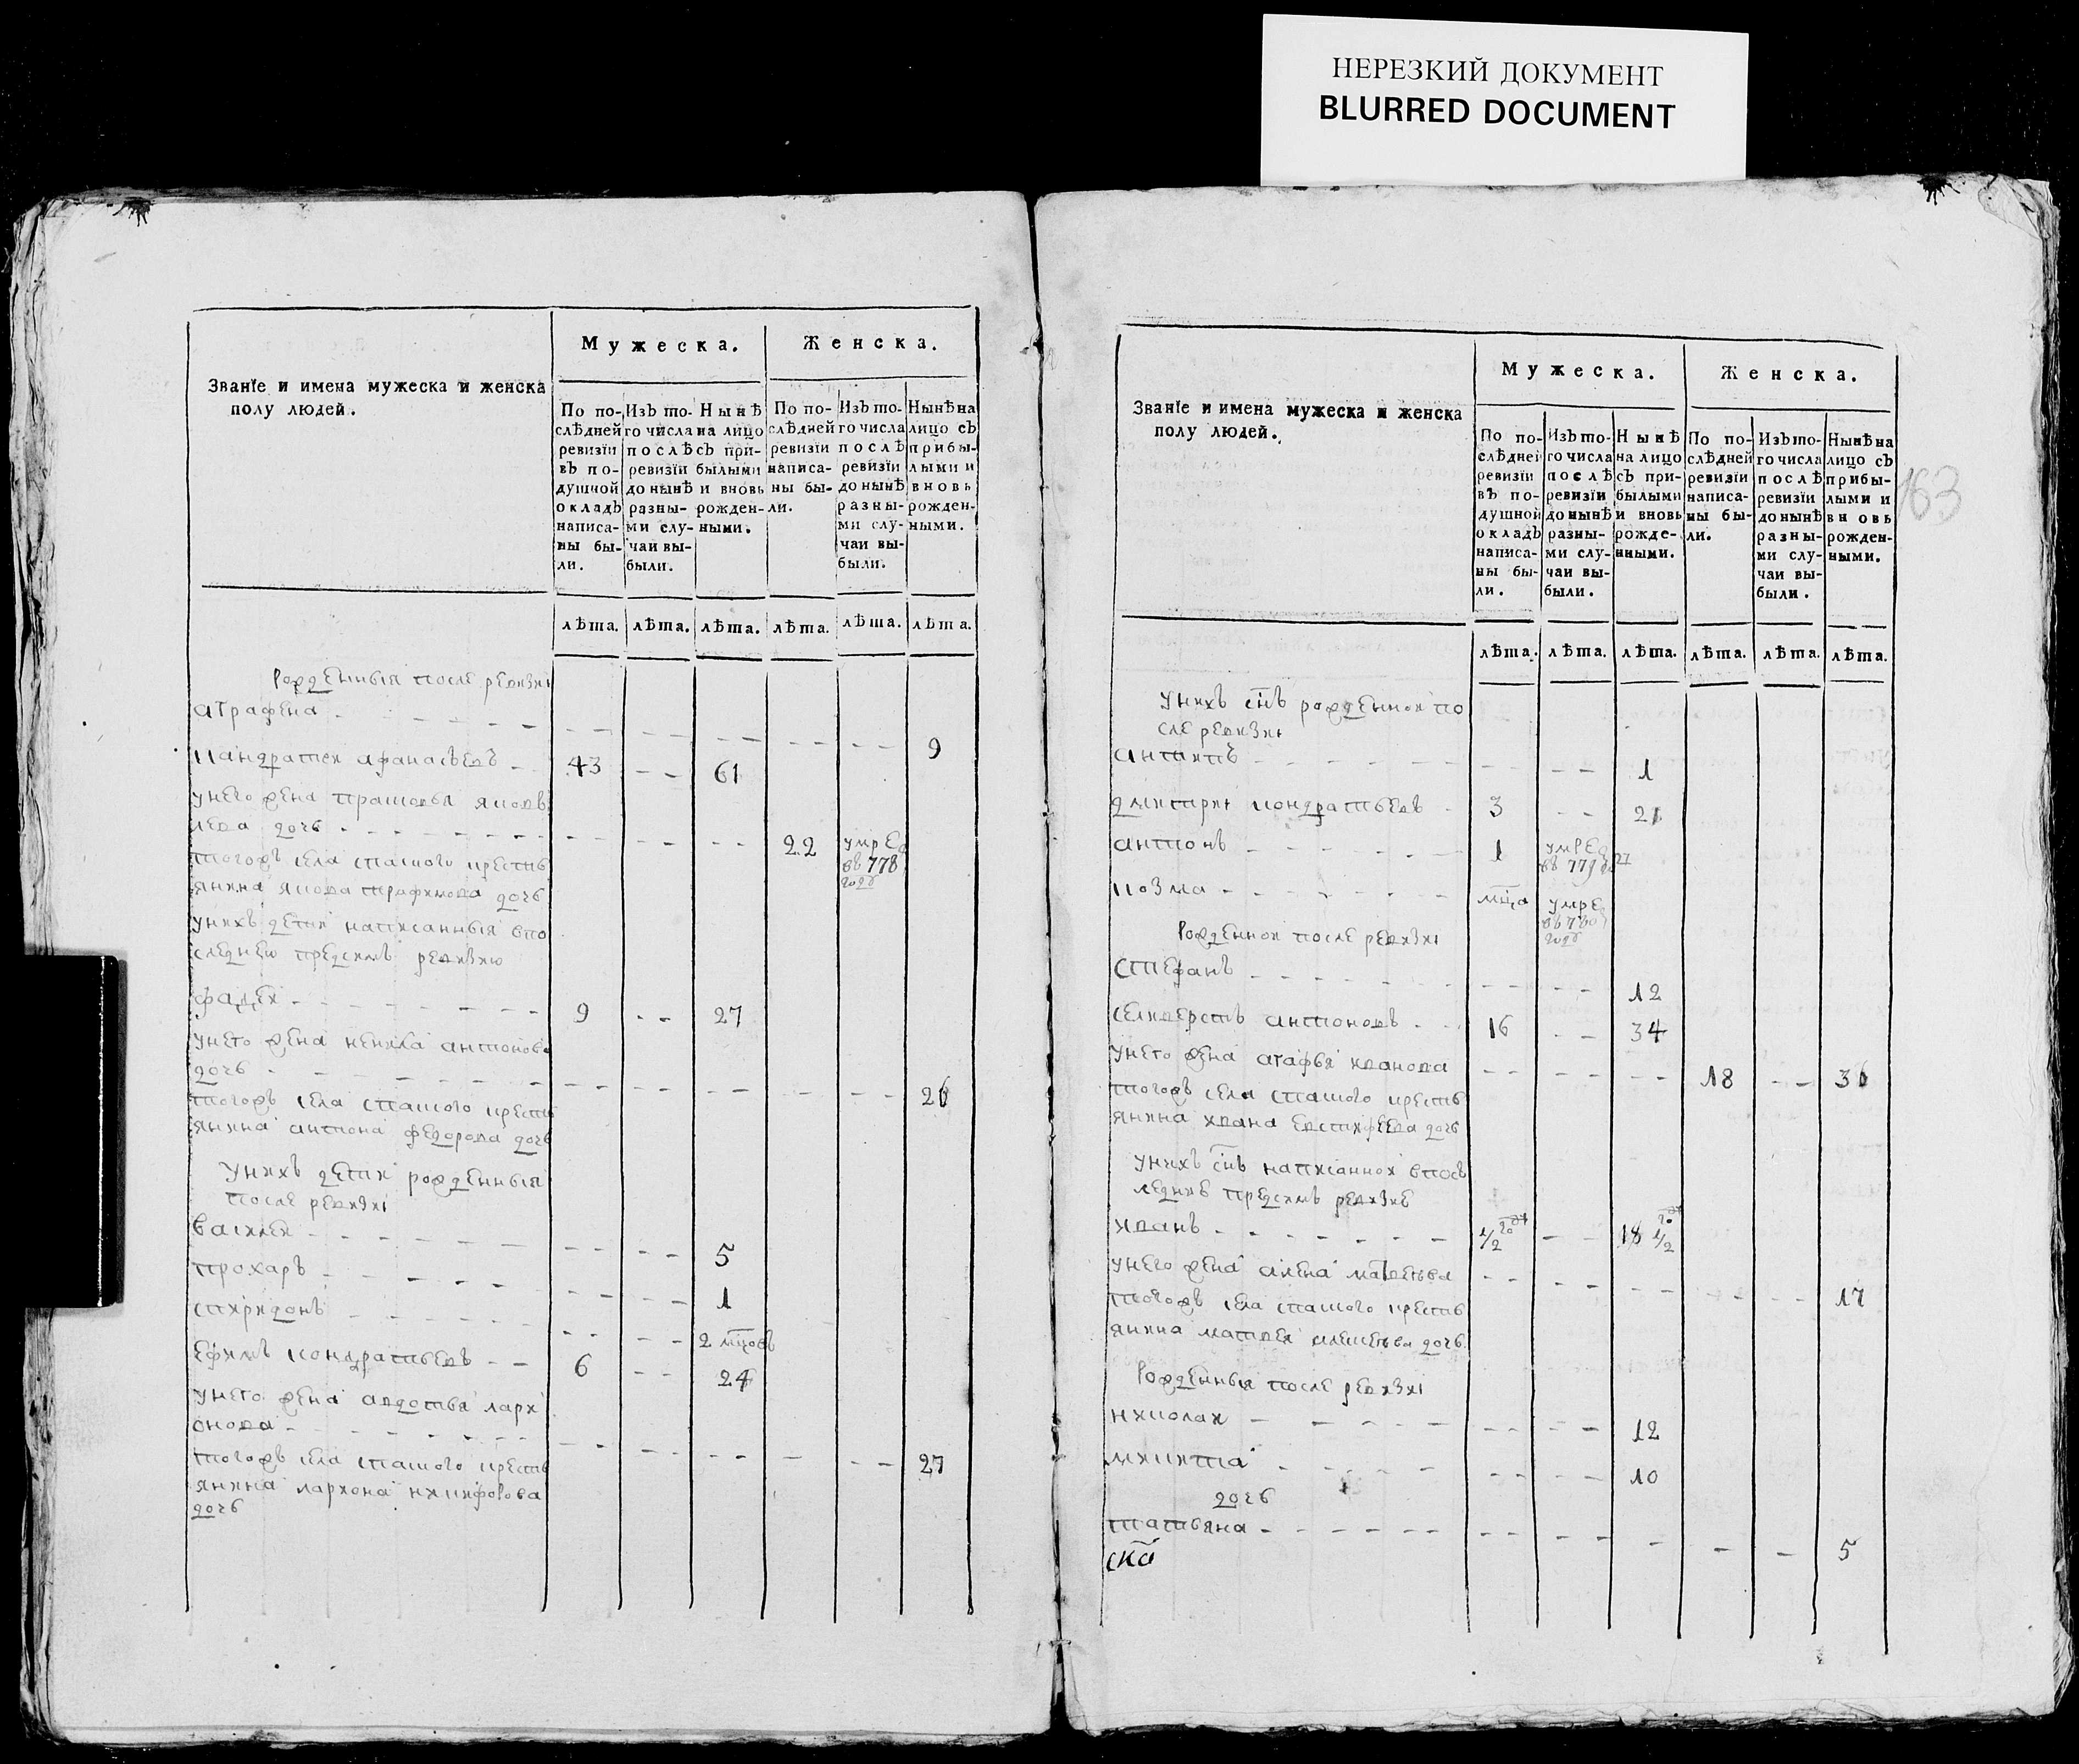 НЕРЕЗКИЙ ДОКУМЕНТ
BLURRED DOCUMENT
Званїе и имена мужеска и женска
полу людей.
Мужеска.
Женска.
По по-
слѣдней
ревизїи
въ по-
душной
окладъ
написа-
ны бы-
ли.
Изъ то-
го числа
послѣ
ревизїи
до нынѣ
разны-
ми слу-
чаи вы-
были.
Нынѣ
на лицо
съ при-
былыми
и вновь
рожден-
ными.
По по-
слѣдней
ревизїи
написа-
ны бы-
ли.
Изъ то-
го числа
послѣ
ревизїи
до нынѣ
разны-
ми слу-
чаи вы-
были.
Нынѣ на
лицо съ
прибы-
лыми и
вновь
рожден-
ными.
лѣта. лѣта. лѣта. лѣта. лѣта. лѣта.
рожденныя после ревизии
аграфена - - - - 9
кандратеи афанасьевъ - - 43 - - 61
унего жена прасковья яковъ
лева дочь - - - - 22 умре
въ 778
году
тогожъ села сташого кресть
янина якова трафимова дочь
унихъ детеи написанныя впо
следнею предсимъ ревизию
фадеи - - - - 9 - - 27
унего жена ненила антонова
дочь - - - - 26
тогожъ села сташого кресть
янина антона федорова дочь
Унихъ детеи рожденныя
после ревизиі
василеи - - - - 5
прохаръ - - - - 1
спиридонъ - - - - 2 мцовъ
ефимъ кондратьевъ - - 6 - - 24
унего жена авдотья лари
онова - - - - 27
тогожъ села сташого кресть
янина лариона никифорова
дочь
163
Званїе и имена мужеска и женска
полу людей.
Мужеска.
Женска.
По по-
слѣдней
ревизїи
въ по-
душной
окладъ
написа-
ны бы-
ли.
Изъ то-
го числа
послѣ
ревизїи
до нынѣ
разны-
ми слу-
чаи вы-
были.
Нынѣ
на лицо
съ при-
былыми
и вновь
рожде-
нными.
По по-
слѣдней
ревизїи
написа-
ны бы-
ли.
Изъ то-
го числа
послѣ
ревизїи
до нынѣ
разны-
ми слу-
чаи вы-
были.
Нынѣ на
лицо съ
прибы-
лыми и
вновь
рожден-
ными.
лѣта. лѣта. лѣта. лѣта. лѣта. лѣта.
унихъ снъ рожденнои по
сле ревизиі
антипъ - - - - 1
дмитриі кондратьевъ - 3 - - 21
антонъ - - - - 1 умре
въ 779
козма - - - - мца умре
году
рожденнои после ревизиі
стефанъ - - - - 12
селиверстъ антоновъ - - 16 - - 34
унего жена агафья иванова - - - - 18 - - 36
тогожъ села сташого кресть
янина ивана евстифеева дочь
унихъ снъ написаннои впось
ледние предсимъ ревизие
иванъ - - - - 1/2 - - 18 1/2
унего жена алена матвеева - - - - 17
тогожъ села сташого кресть
янина матвея алексеева дочь
рожденныя после ревизиі
николаи - - - - 12
микита - - - - 10
дочь
татьяна - - - - 5
ска